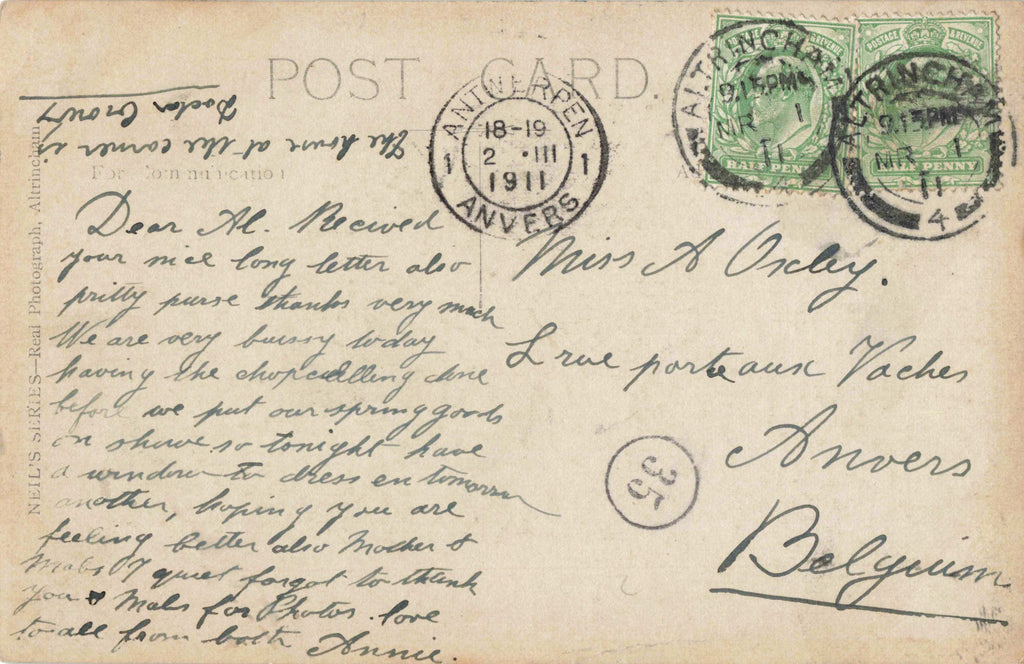 POST CARD.
The house at the corner is
Doctor
For Communication
NEIL'S SERIES—Real Photograph, Altrincham
ANTWERPEN
18-19
2 · III
1911
1 1
ANVERS
POSTAGE & REVENUE
HALF PENNY
ALTRINCHAM
9.15PM
MR 1
11
POSTAGE & REVENUE
HALF PENNY
ALTRINCHAM
9.15PM
MR 1
11
4
Dear Al. Recived
your nice long letter also
pritty purse thanks very much
We are very buissy today
having the done
before we put our spring goods
on showe so tonight have
a window to dress en tomorrow
another, hoping you are
feeling better also Mother &
Mabs I quiet forgot to thank
you & Mabs for Photos. love
to all from both Annie.
Miss A Oxley.
rue porte aux Vaches
Anvers
Belgium
35